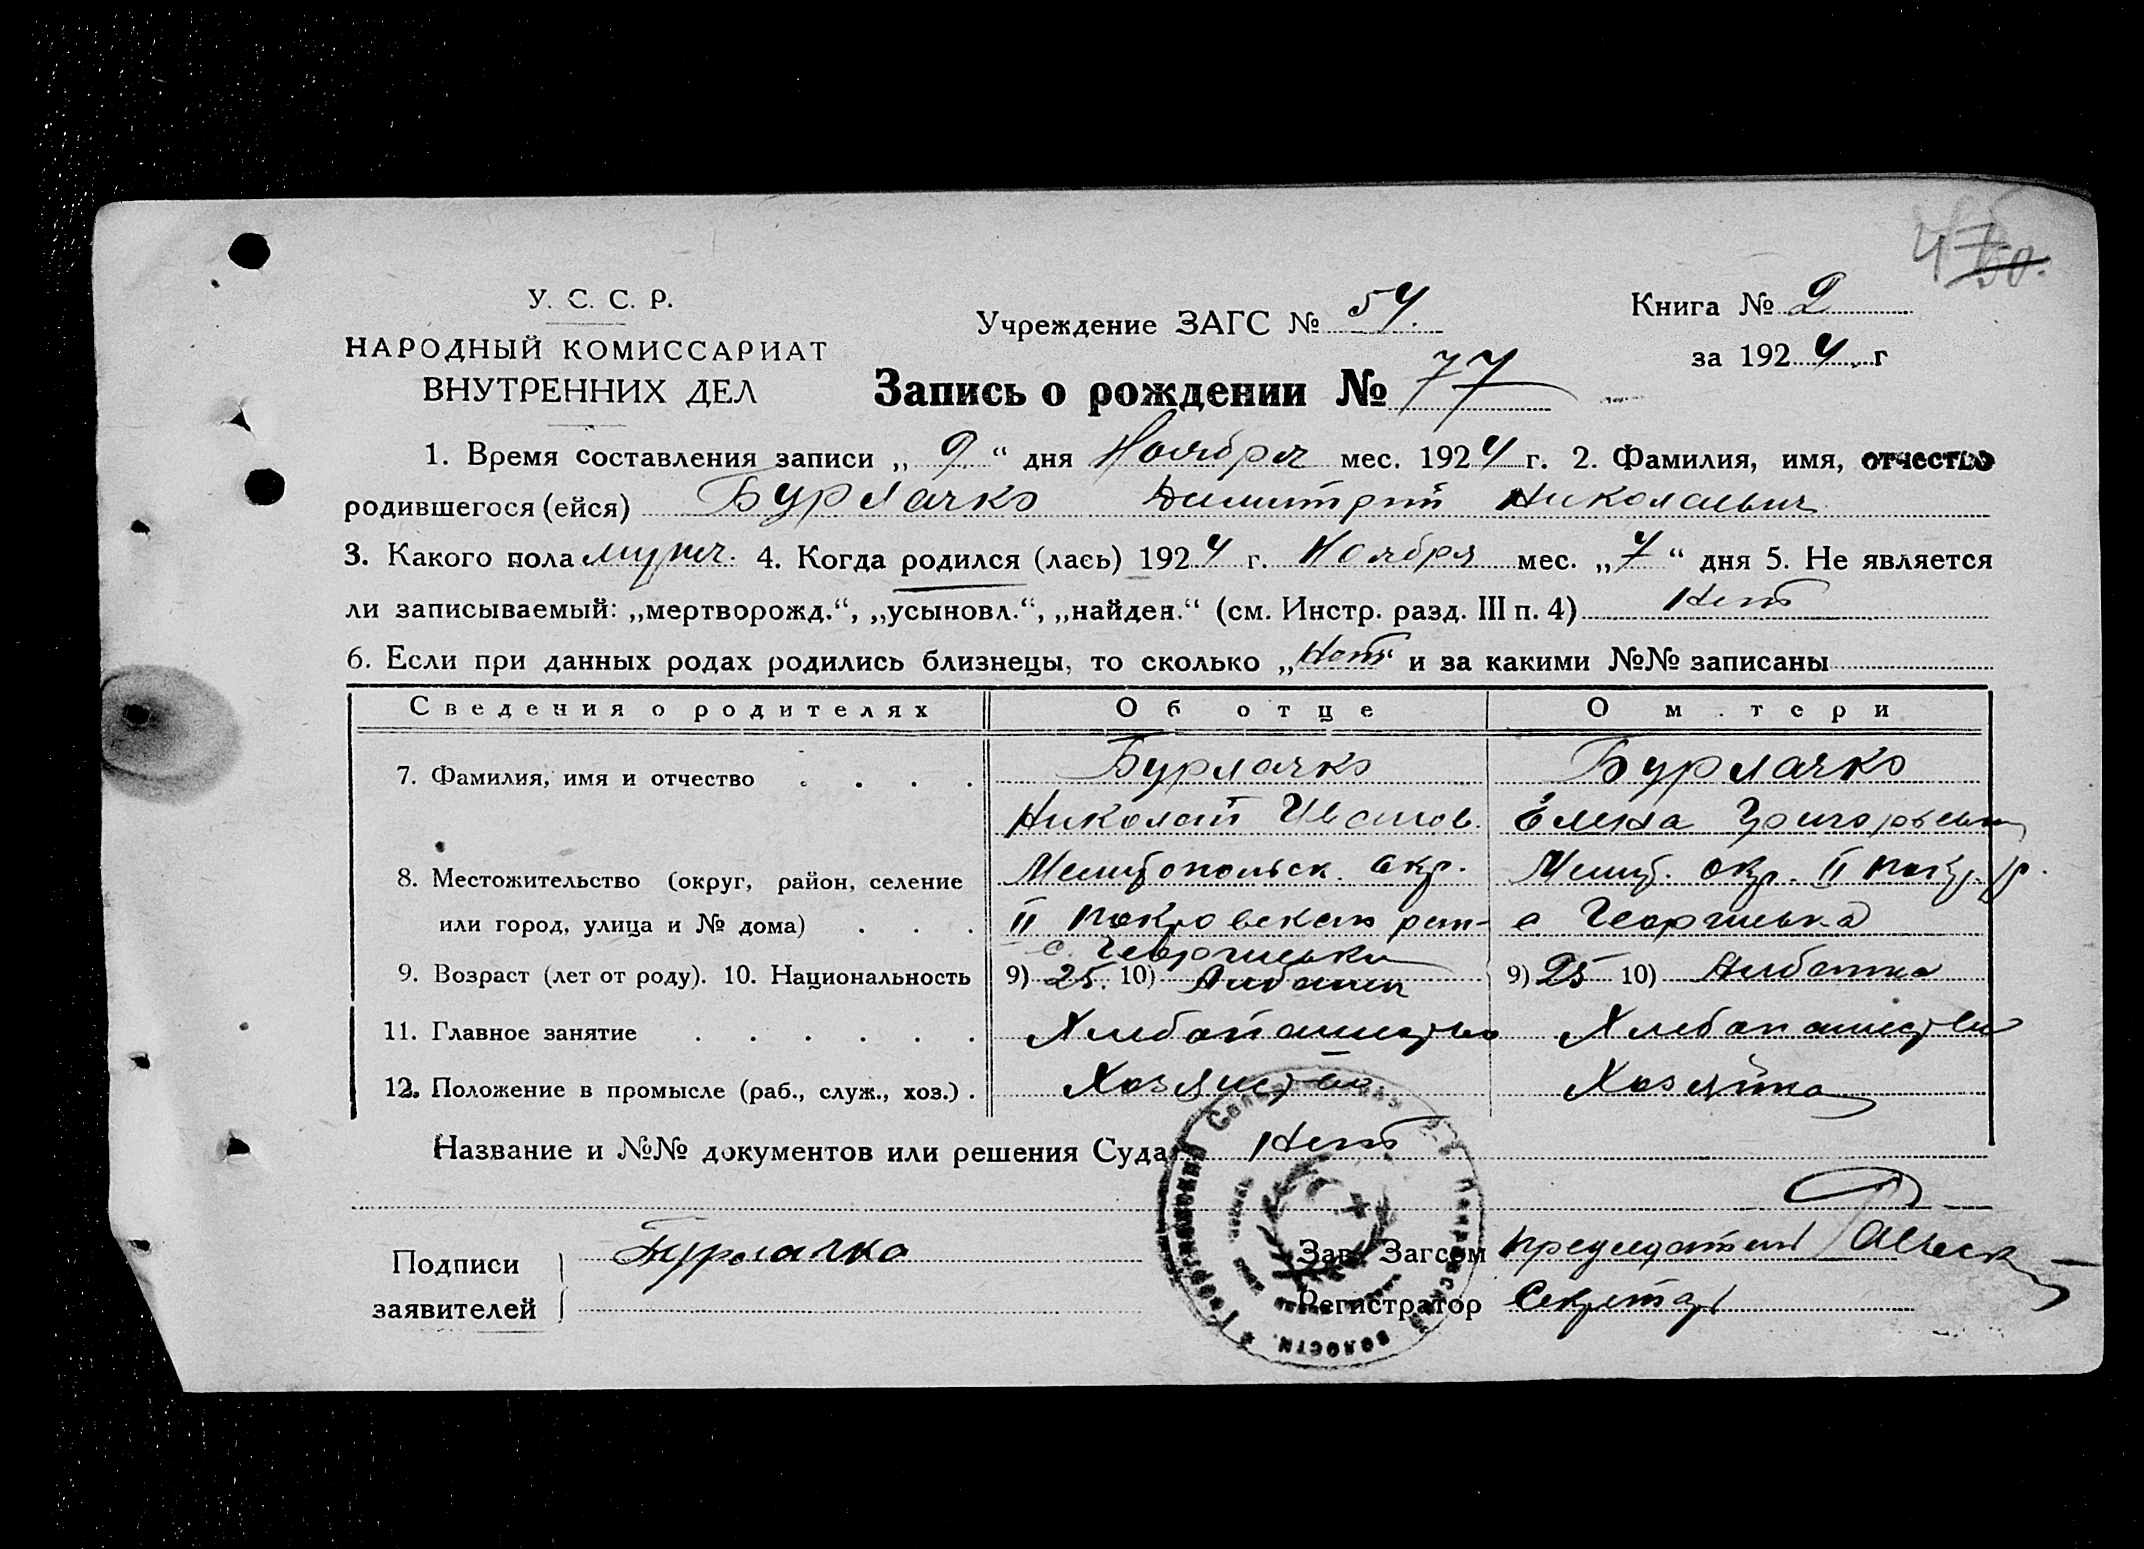 47 50.
У. С. С. Р.
НАРОДНЫЙ КОМИССАРИАТ
ВНУТРЕННИХ ДЕЛ
Учреждение ЗАГС № 54.
Книга № 2
за 1924 г
Запись о рождении № 77
1. Время составления записи „ 9 “ дня Ноября мес. 1924 г. 2. Фамилия, имя, отчество
родившегося (ейся) Бурлачко Димитрий Николаевич
3. Какого пола мужч. 4. Когда родился (лась) 1924 г. Ноября мес. „ 7 “ дня 5. Не является
ли записываемый: „мертворожд.“, „усыновл.“, „найден.“ (см. Инстр. разд. III п. 4) Нет
6. Если при данных родах родились близнецы, то сколько „ Нет “ и за какими №№ записаны
Сведения о родителях Об отце О м тери
7. Фамилия, имя и отчество Бурлачко Бурлачко
Николай Иванов. Елена Григорьевна
8. Местожительство (округ, район, селение Мелитопольск. окр. Мелит. окр. II Покр. р.
или город, улица и № дома) II Покровскаго рай- с Георгиевка
с. Георгиевка
9. Возраст (лет от роду). 10. Национальность 9) 25. 10) Албанец 9) 25 10) Албанка
11. Главное занятие Хлебопашество Хлебопашество
12. Положение в промысле (раб., служ., хоз.) . Хозяйство Хозяйка
Название и №№ документов или решения Суда Нет
Подписи заявителей Бурлачко
Зав. Загсом председатель
Регистратор Секретарь
Георгиевский волости.